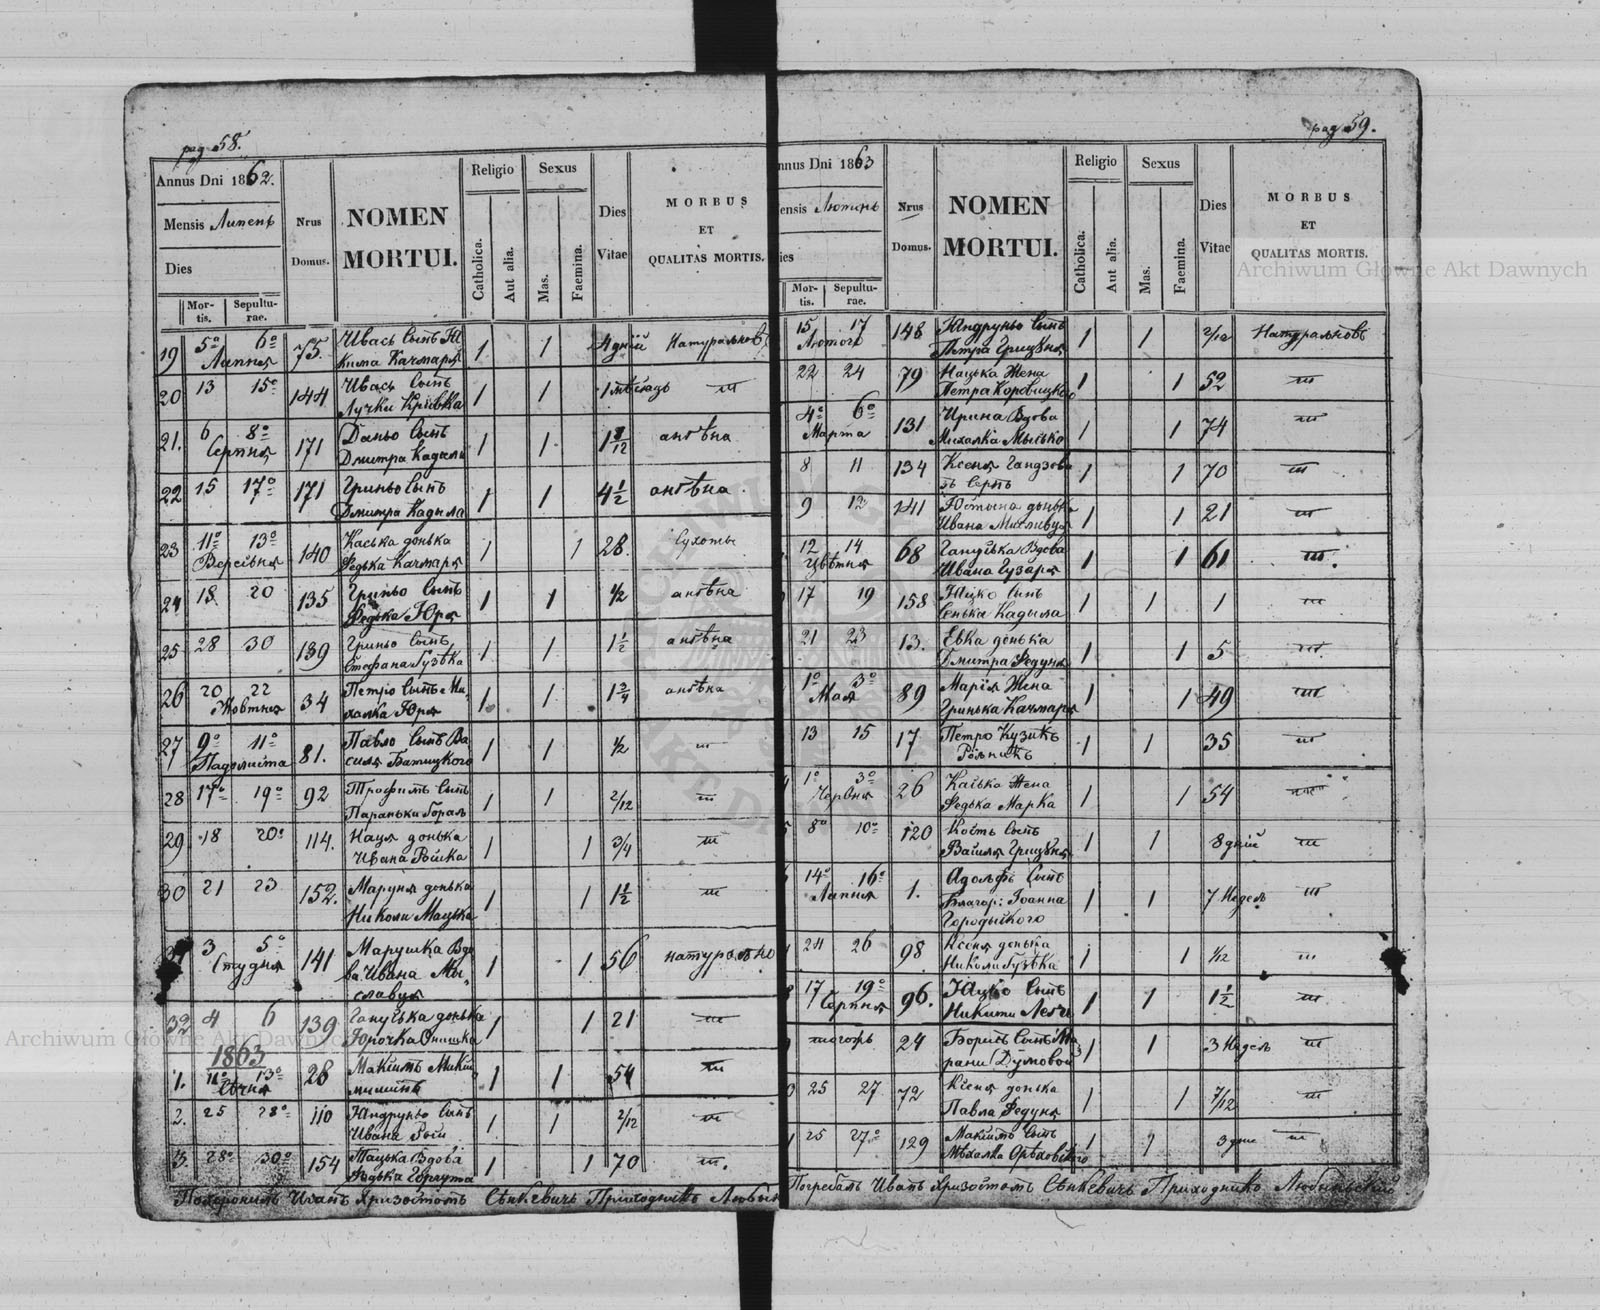 pag 58.
Annus Dni 1862.
Mensis Липень
Dies
Mortis.
Sepulturae.
Nrus Domus.
NOMEN MORTUI.
Religio
Catholica.
Aut alia.
Sexus
Mas.
Faemina.
Dies Vitae
MORBUS
ET
QUALITAS MORTIS.
19 5º 6º 75. Ивась сынъ Я
Липня кима Качмаря 1 1 4 дній Натуральновъ
20 13 15º 144 Ивась сынъ
Лучки Крівка 1 1 1 мѣсяць ш
21. 6 8º 171 Даньо сынъ
Серпня Дмитра Кадыла 1 1 1 8/12 ангѣна
22 15 17º 171 Гриньо сынъ
Дмитра Кадыла 1 1 4 1/2 ангѣна
23 11º 13º 140 Каська донька
Вересня Федька Качмаря 1 1 28. Сухоты
24 18 20 135 Гриньо сынъ
Федька Юря 1 1 1/2 ангѣна
25 28 30 139 Гриньо сынъ
Стефана Гузѣка 1 1 1 1/2 ангѣна
26 20 22 34 Петро сынъ Ми
Жовтня халка Юря 1 1 1 3/4 ангѣна
27 9º 11º 81. Павло сынъ Ва
Падолиста силя Батицкого 1 1 1/2 ш
28 17º 19º 92 Трофимъ сынъ
Параньки Гораль 1 1 2/12 ш
29 18 20º 114. Нация донька
Ивана Ройка 1 1 3/4 ш
30 21 23 152. Маруня донька
Николи Мацька 1 1 1 1/2 ш
3 5º 141 Марушка Вдо
Студня ва Ивана Мы
славця 1 1 56 натурально
32 4 6 139 Гануська донька
Юрочка Онишка 1 1 21 ш
1863
1. 11º 13º 28 Максимъ Микій
Сѣчня 1 1 54 ш
2. 25 28º 110 Яндруньо сынъ
Ивана 1 1 2/12 ш
3. 28º 30º 154 Тацька Вдова
Федька Горгута 1 1 70 ш.
Похоронилъ Иванъ Хризостомъ Сѣнкевичъ Приходникъ
pag 59.
Annus Dni 1863
Mensis Лютень
Dies
Mortis.
Sepulturae.
Nrus Domus.
NOMEN MORTUI.
Religio
Catholica.
Aut alia.
Sexus
Mas.
Faemina.
Dies Vitae
MORBUS
ET
QUALITAS MORTIS.
15 17 148 Яндруньо сынъ
Лютого Петра Грицѣня 1 1 2/12 Натуральновъ
22 24 79 Нацька Жена
Петра Коровицкого 1 1 52 ш
4º 6º 131 Ирина Вдова
Марта Михалка Мысько 1 1 74 ш
8 11 134 Ксеня Гандзова
1 1 70 ш
9 12 141 Юстына донька
Ивана Мисливця 1 1 21 ш
12 14 68 Гануська Вдова
Цвѣтня Ивана Гузаря 1 1 61 ш.
17 19 158 Яцко сынъ
Сенька Кадыла 1 1 1 ш
21 23 13. Евка донька
Дмитра Федуня 1 1 5 ш
1º 3º 89 Марія Жена
Мая Гринька Качмаря 1 1 49 ш
13 15 17 Петро Кузикъ
Рольникъ 1 1 35 ш
1º 3º 26 Каська Жена
Червня Федька Марка 1 1 54 ш
8º 10º 120 Кость сынъ
Василя Грицѣня 1 1 8 дній ш
14º 16º 1. Адольфъ сынъ
Липня Благор: Іоанна
Городыского 1 1 7 Недѣль ш
24 26 98 Ксеня донька
Николи Гузѣка 1 1 1/12 ш
17 19º 96. Яцко сынъ
Серпня Никити 1 1 1 1/2 ш
24 Борисъ сынъ Ма
рани Думовой 1 1 3 Недѣль ш
25 27 72 Ксеня донька
Павла Федуня 1 1 7/12 ш
25 27º 129 Максимъ сынъ
Мѣхалка Орѣховского 1 1 3 дни ш
Погребалъ Иванъ Хризостомъ Сѣнкевичъ Приходникъ
Archiwum Główne Akt Dawnych
Archiwum Główne Akt Dawnych